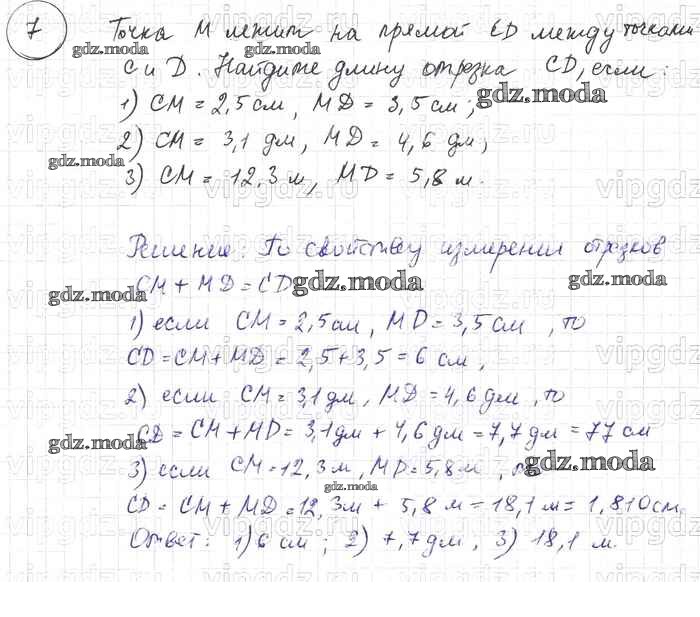 7 Точка М лежит на прямой CD между точками
С и D. Найдите длину отрезка CD, если:
1) CM = 2,5 см, MD = 3,5 см;
2) CM = 3,1 дм, MD = 4,6 дм;
3) CM = 12,3 м, MD = 5,8 м.
Решение: По свойству измерения отрезков
CM + MD = CD
1) если CM = 2,5 см, MD = 3,5 см, то
CD = CM + MD = 2,5 + 3,5 = 6 см,
2) если CM = 3,1 дм, MD = 4,6 дм, то
CD = CM + MD = 3,1 дм + 4,6 дм = 7,7 дм = 77 см
3) если CM = 12,3 м, MD = 5,8 м,
CD = CM + MD = 12,3 м + 5,8 м = 18,1 м = 1,810 см.
Ответ: 1) 6 см; 2) 7,7 дм, 3) 18,1 м.
gdz.moda
gdz.moda
gdz.moda
gdz.moda
gdz.moda
gdz.moda
gdz.moda
gdz.moda
gdz.moda
gdz.moda